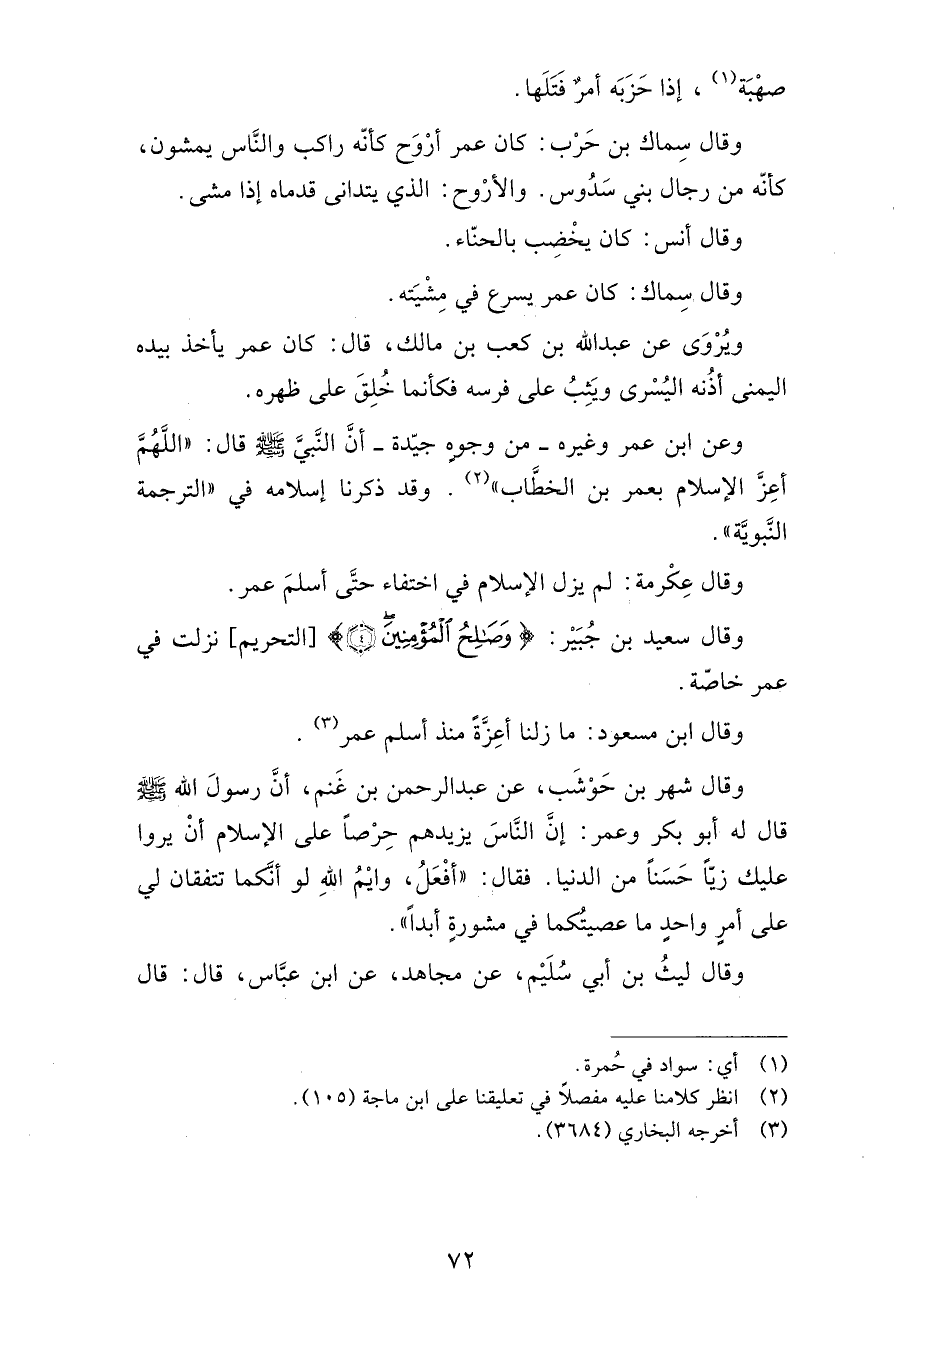 صهْبَة(١) ، إذا حَزَبَه أمرٌ فَتَلَها .
وقال سِماك بن حَرْب : كان عمر أرْوَح كأنّه راكب والنَّاس يمشون،
كأنّه من رجال بني سَدُوس. والأرْوح: الذي يتدانى قدماه إذا مشى.
وقال أنس : كان يخْضِب بالحنّاء .
وقال سِماك: كان عمر يسرع في مِشْيَته .
ويُرْوَى عن عبدالله بن كعب بن مالك، قال: كان عمر يأخذ بيده
اليمنى أذُنه اليُسْرى ويَثِبُ على فرسه فكأنما خُلِقَ على ظهره.
وعن ابن عمر وغيره ـ من وجوهٍ جيّدة ـ أنَّ النَّبيَّ ﷺ قال: «اللَّهُمَّ
أعِزَّ الإسلام بعمر بن الخطَّاب»(٢) . وقد ذكرنا إسلامه في «الترجمة
النَّبويَّة».
وقال عِكْرمة: لم يزل الإسلام في اختفاء حتَّى أسلمَ عمر.
وقال سعيد بن جُبَيْر: ﴿ وَصَٰلِحُ ٱلْمُؤْمِنِينَۖ ﴿٤﴾ ﴾ [التحريم] نزلت في
عمر خاصّة .
وقال ابن مسعود: ما زلنا أعِزَّةً منذ أسلم عمر(٣) .
وقال شهر بن حَوْشَب، عن عبدالرحمن بن غَنم، أنَّ رسولَ الله ﷺ
قال له أبو بكر وعمر: إنَّ النَّاسَ يزيدهم حِرْصاً على الإسلام أنْ يروا
عليك زيّاً حَسَناً من الدنيا. فقال: «أفْعَلُ، وايْمُ اللهِ لو أنَّكما تتفقان لي
على أمرٍ واحدٍ ما عصيتُكما في مشورةٍ أبداً».
وقال ليثُ بن أبي سُلَيْم، عن مجاهد، عن ابن عبَّاس، قال: قال
(١) أي: سواد في حُمرة.
(٢) انظر كلامنا عليه مفصلاً في تعليقنا على ابن ماجة (١٠٥).
(٣) أخرجه البخاري (٣٦٨٤).
٧٢